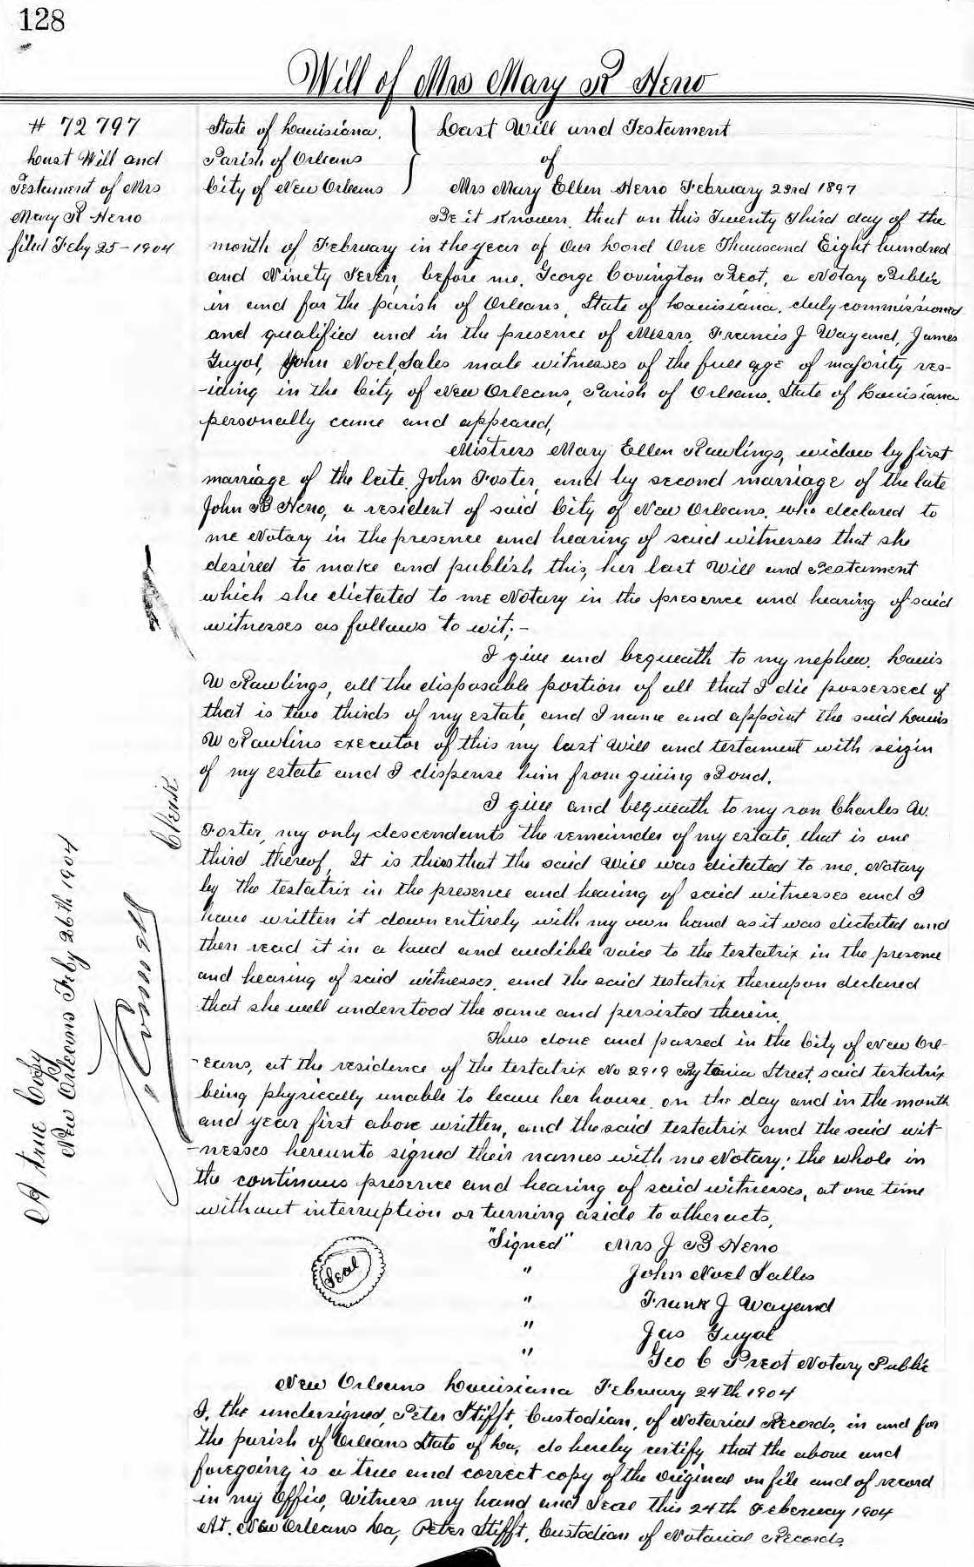 128
Will of Mrs Mary R Heno
# 72797
Last Will and
Testament of Mrs
Mary R Heno
filed Feby 25 - 1904
State of Louisiana.
Parish of Orleans
City of New Orleans
Last Will and Testament
of
Mrs Mary Ellen Heno February 23rd 1897
Be it Known, that on this Twenty Third day of the
month of February in the year of our Lord One Thousand Eight hundred
and Ninety Seven, before me, George Covington Preot, a Notary Public
in and for the parish of Orleans, State of Louisiana, duly commissioned
and qualified and in the presence of Messrs, Francis J Wayand, James
Guyol, John Noel Sales male witnesses of the full age of majority res-
-iding in the City of New Orleans, Parish of Orleans, State of Louisiana
personally came and appeared,
Mistress Mary Ellen Rawlings, widow by first
marriage of the late John Foster, and by second marriage of the late
John B Heno, a resident of said City of New Orleans, who declared to
me Notary in the presence and hearing of said witnesses that she
desired to make and publish this, her last Will and Testament
which she dictated to me Notary in the presence and hearing of said
witnesses as follows to wit: -
I give and bequeath to my nephew, Louis
W Rawlings, all the disposable portion of all that I die possessed of
that is two thirds of my estate, and I name and appoint the said Louis
W Rawlins executor of this my last Will and testament with seizin
of my estate and I dispense him from giving Bond.
I give and bequeath to my son Charles W.
Foster, my only descendants the remainder of my estate, that is one
third thereof, It is thus that the said Will was dictated to me, Notary
by the testatrix in the presence and hearing of said witnesses and I
have written it down entirely with my own hand as it was dictated and
then read it in a loud and audible voice to the testatrix in the presence
and hearing of said witnesses, and the said testatrix thereupon declared
that she well understood the same and persisted therein.
Thus done and passed in the City of New Orl-
-eans, at the residence of the testatrix No 2919 Prytania Street, said testatrix
being physically unable to leave her house, on the day and in the month
and year first above written, and the said testatrix and the said wit-
-nesses hereunto signed their names with me Notary; the whole in
the continuous presence and hearing of said witnesses, at one time
without interruption or turning aside to other acts,
"Signed" Mrs J B Heno
" John Noel Salles
" Frank J Wayand
" Jas Guyol
" Geo C Preot Notary Public
Seal
New Orleans Louisiana February 24th 1904
I, the undersigned, Peter Stifft, Custodian, of Notarial Records, in and for
the parish of Orleans State of La, do hereby certify that the above and
foregoing is a true and correct copy of the original on file and of record
in my office, Witness my hand and Seal this 24th February 1904
At. New Orleans La, Peter Stifft, Custodian of Notarial Records.
A true Copy
New Orleans Feby 26th 1904
Clerk